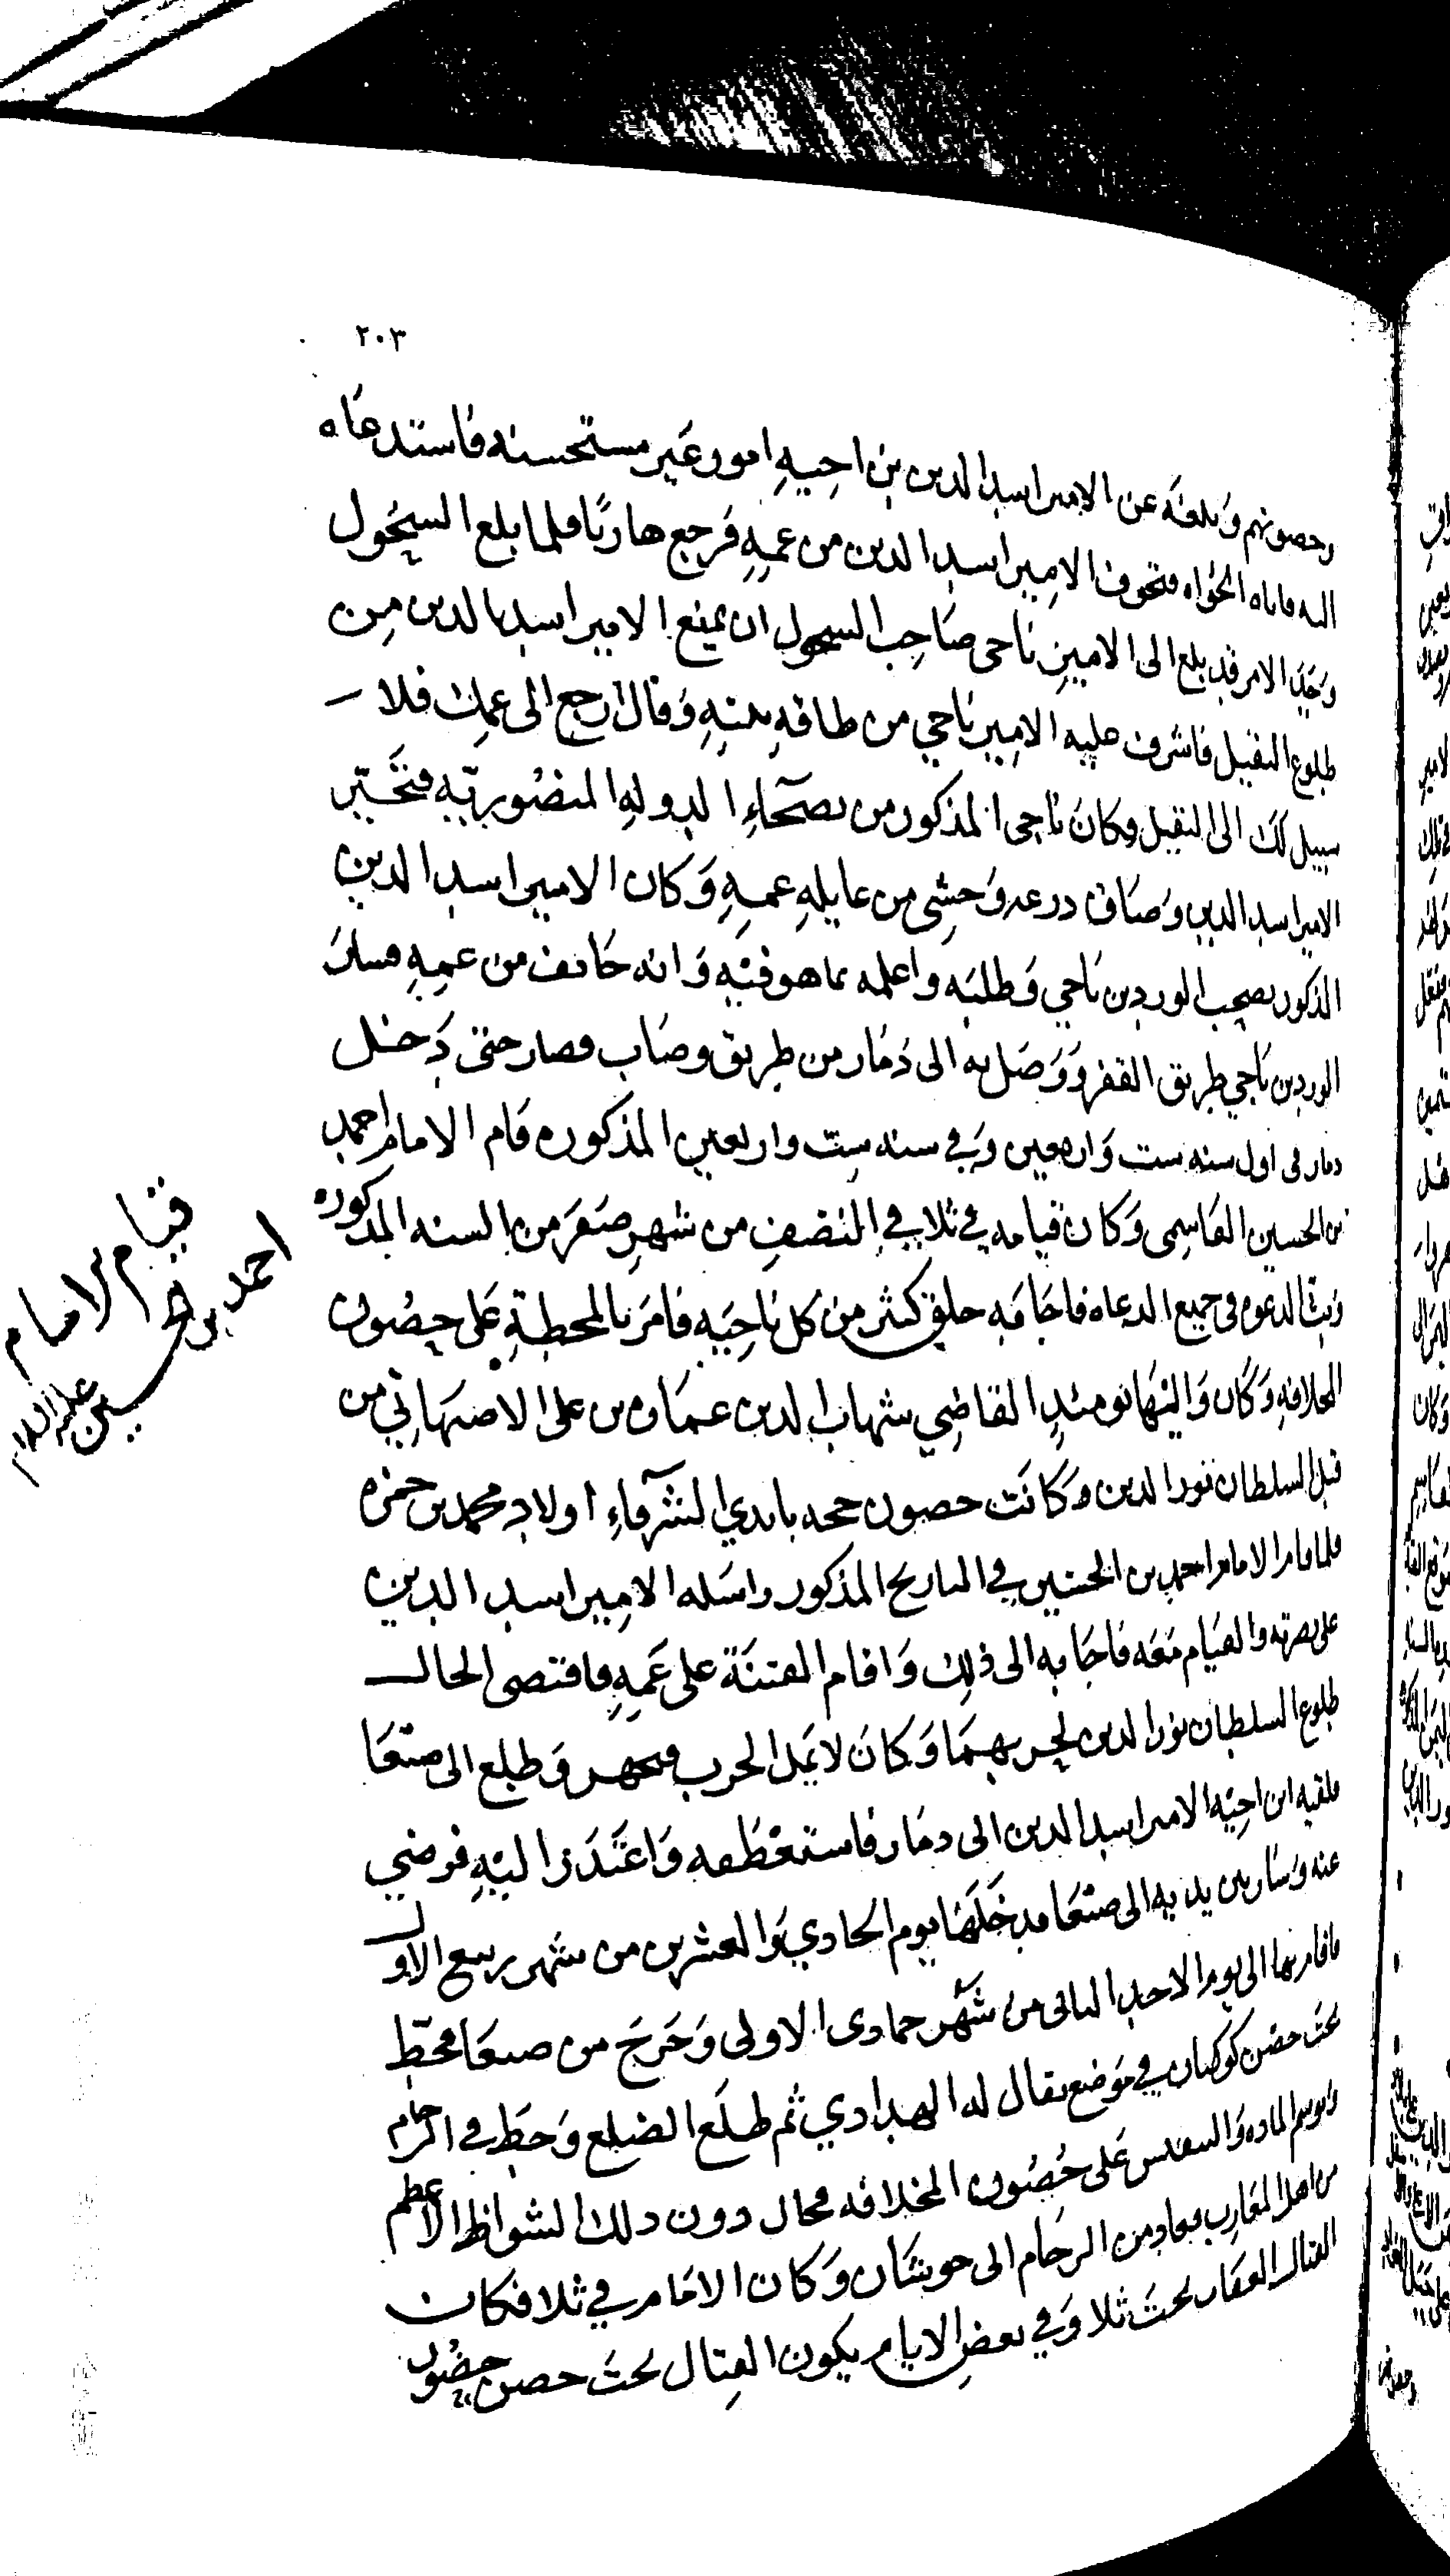 ٢٠٣
وحصونهم وبلغه عن الامير اسد الدين بن اخيه امور غير مستحسنه فاستدعاه
اليه فاتاه الى الجواه فتخوف الامير اسد الدين من عمه فرجع هاربا فلما بلغ السحول
وجد الامر قد بلغ الى الامير ناجي صاحب السحول ان يمنع الامير اسد الدين من
طلوع النقيل فاشرف عليه الامير ناجي من طاقه بيته وقال ارجع الى عمك فلا
سبيل لك الى النقيل وكان ناجي المذكور من نصحاء الدوله المنصوريه فتحير
الامير اسد الدين وضاق ذرعه وخشي من عايله عمه وكان الامير اسد الدين
المذكور يصحب الورد بن ناجي وطلبه واعلمه بما هو فيه وانه خائف من عمه فسلك
الورد بن ناجي طريق القفر ووصل به الى ذمار من طريق وصاب فصار حتى دخل
ذمار في اول سنه ست واربعين وفي سنه ست واربعين المذكوره قام الامام احمد
بن الحسين القاسمي وكان قيامه في ثلا في النصف من شهر صفر من السنه المذكوره
وبث الدعوه في جميع الدعاه فاجابه خلق كثير من كل ناحيه فامر بالمحطة على حصون
المخلافه وكان واليها يومئذ القاضي شهاب الدين عماره بن علي الاصبهاني من
قبل السلطان نور الدين وكانت حصون حجه بايدي الشرفاء اولاد محمد بن حمزه
فلما قام الامام احمد بن الحسين في التاريخ المذكور راسله الامير اسد الدين
على نصرته والقيام معه فاجابه الى ذلك واقام الفتنة على عمه فاقتضى الحال
طلوع السلطان نور الدين لحربهما وكان لا يمل الحرب فتجهز وطلع الى صنعا
فلقيه ابن اخيه الامير اسد الدين الى ذمار فاستعطفه واعتذر اليه فرضي
عنه وسار بين يديه الى صنعا فدخلها يوم الحادي والعشرين من شهر ربيع الاول
فاقام بها الى يوم الاحد الثاني من شهر جمادى الاولى وخرج من صنعا فحط
تحت حصن كوكبان في موضع يقال له الهدادي ثم طلع الضلع وحط في الرجام
على حصون المخلافه فحال دون ذلك الشواظ الاعظم
من اهل المغارب فعاد من الرجام الى حوشان وكان الامام في ثلا فكان
القتال العقاب تحت ثلا وفي بعض الايام يكون القتال تحت حصن حضور
قيام الامام
احمد بن الحسين
عليه السلام